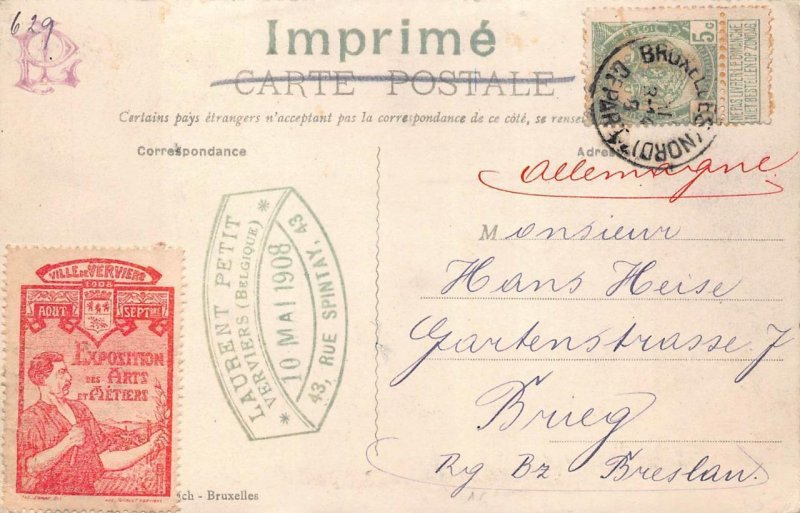 629
Imprimé
CARTE POSTALE
Certains pays étrangers n'acceptant pas la correspondance de ce côté, se rensei
Correspondance
Adres
BELGIE 5c
NE PAS LIVRER LE DIMANCHE
NIET BESTELLEN OP ZONDAG
BRUXELLES (NORD)
DEPART
Allemagne
Monsieur
Hans Heise
Gartenstrasse 7
Brieg
Rg Bz Breslau
LAURENT PETIT
VERVIERS (BELGIQUE)
* 10 MAI 1908 *
43, RUE SPINTAY, 43
VILLE DE VERVIERS
1908
AOUT SEPTbre
EXPOSITION
DES ARTS
ET MÉTIERS
ch - Bruxelles